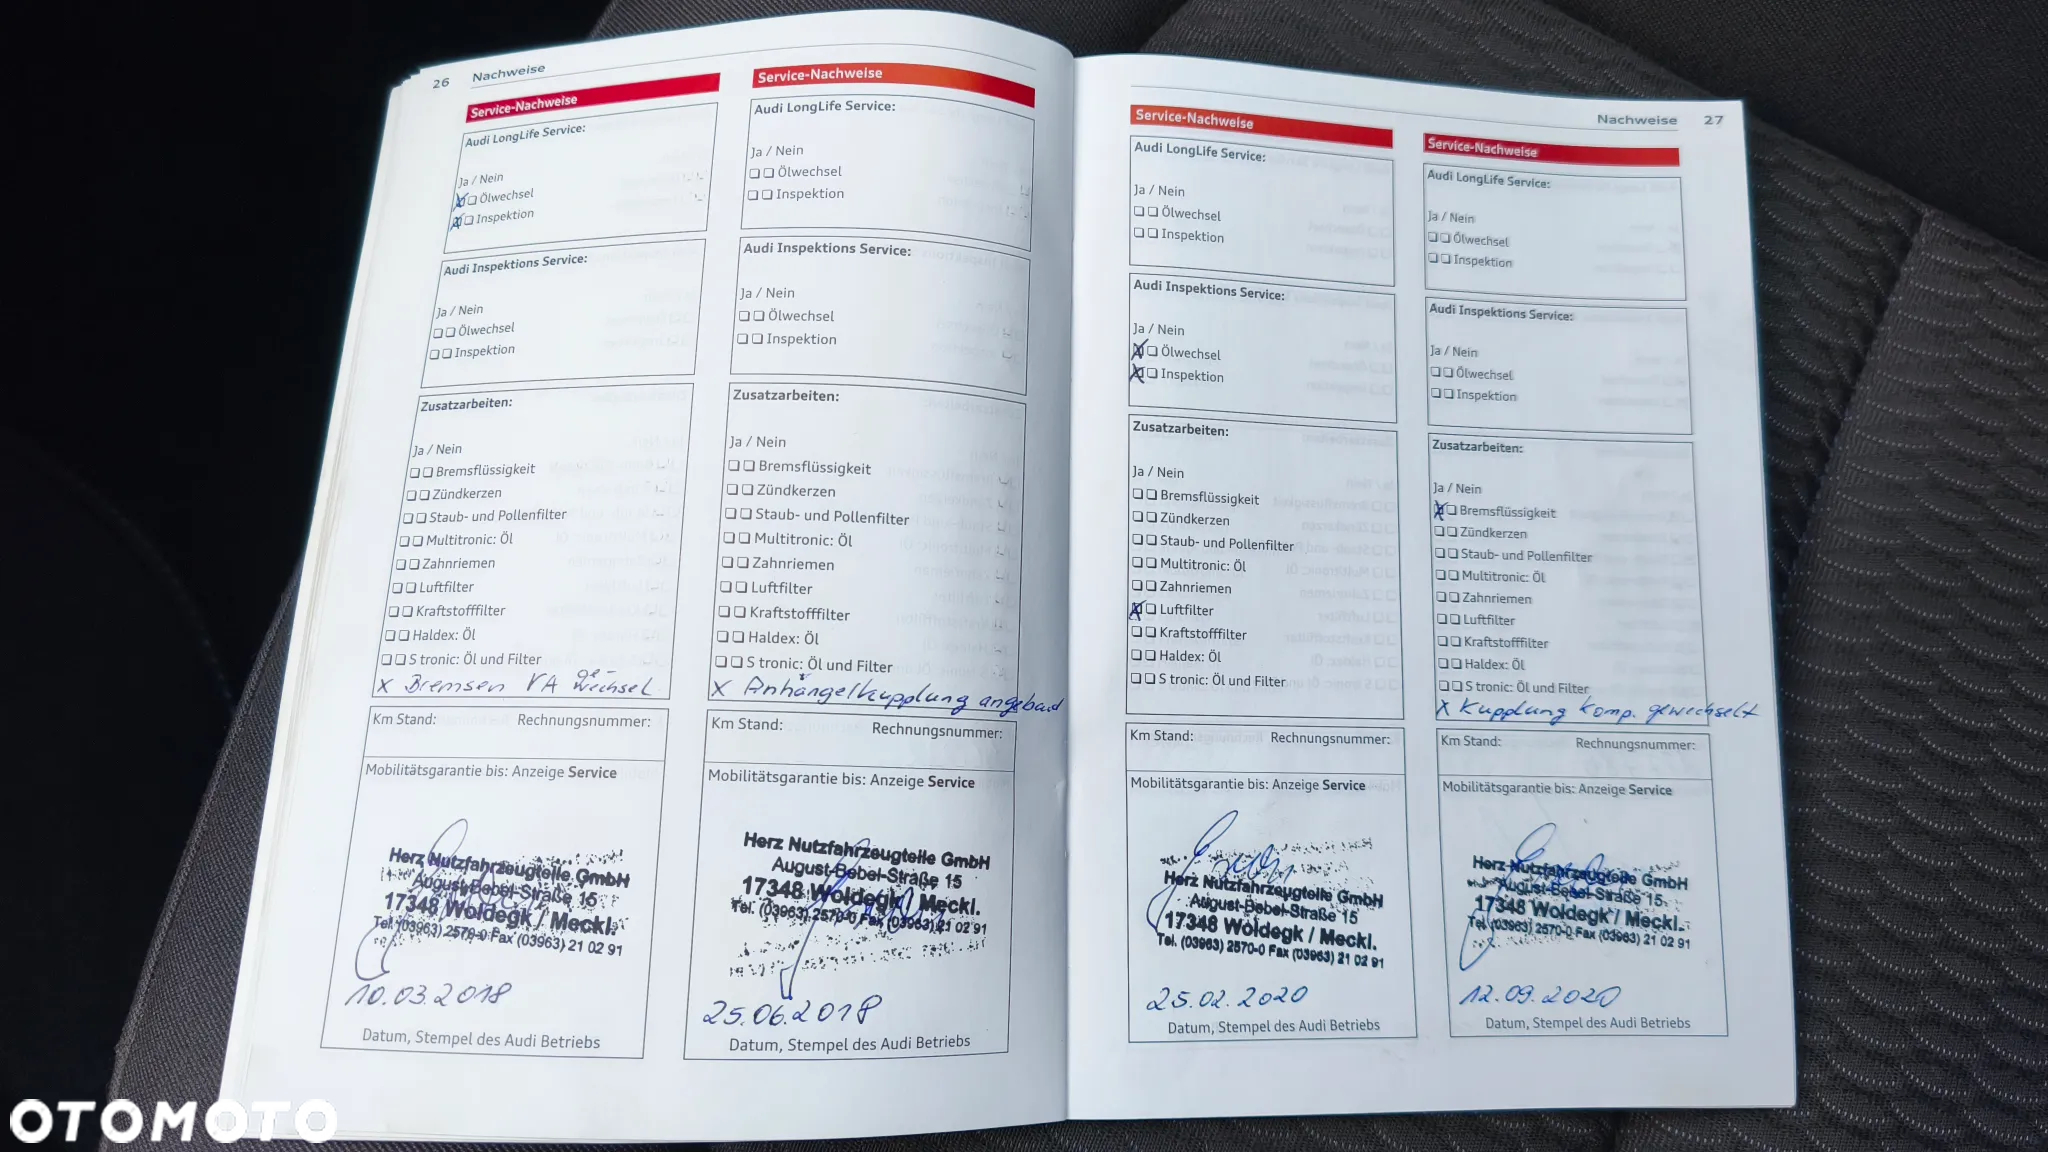 26 Nachweise
Service-Nachweise
Audi LongLife Service:
Ja / Nein
Ölwechsel
Inspektion
Audi Inspektions Service:
Ja / Nein
Ölwechsel
Inspektion
Zusatzarbeiten:
Ja / Nein
Bremsflüssigkeit
Zündkerzen
Staub- und Pollenfilter
Multitronic: Öl
Zahnriemen
Luftfilter
Kraftstofffilter
Haldex: Öl
S tronic: Öl und Filter
X Bremsen VA ge-
wechsel
Km Stand: Rechnungsnummer:
Mobilitätsgarantie bis: Anzeige Service
Herz Nutzfahrzeugteile GmbH
August-Bebel-Straße 15
17348 Woldegk / Meckl.
Tel. (03963) 2570-0 Fax (03963) 21 02 91
10.03.2018
Datum, Stempel des Audi Betriebs
Service-Nachweise
Audi LongLife Service:
Ja / Nein
Ölwechsel
Inspektion
Audi Inspektions Service:
Ja / Nein
Ölwechsel
Inspektion
Zusatzarbeiten:
Ja / Nein
Bremsflüssigkeit
Zündkerzen
Staub- und Pollenfilter
Multitronic: Öl
Zahnriemen
Luftfilter
Kraftstofffilter
Haldex: Öl
S tronic: Öl und Filter
X Anhängelkupplung angebaut
Km Stand: Rechnungsnummer:
Mobilitätsgarantie bis: Anzeige Service
Herz Nutzfahrzeugteile GmbH
August-Bebel-Straße 15
17348 Woldegk / Meckl.
Tel. (03963) 2570-0 Fax (03963) 21 02 91
25.06.2018
Datum, Stempel des Audi Betriebs
Nachweise 27
Service-Nachweise
Audi LongLife Service:
Ja / Nein
Ölwechsel
Inspektion
Audi Inspektions Service:
Ja / Nein
Ölwechsel
Inspektion
Zusatzarbeiten:
Ja / Nein
Bremsflüssigkeit
Zündkerzen
Staub- und Pollenfilter
Multitronic: Öl
Zahnriemen
Luftfilter
Kraftstofffilter
Haldex: Öl
S tronic: Öl und Filter
Km Stand: Rechnungsnummer:
Mobilitätsgarantie bis: Anzeige Service
Herz Nutzfahrzeugteile GmbH
August-Bebel-Straße 15
17348 Woldegk / Meckl.
Tel. (03963) 2570-0 Fax (03963) 21 02 91
25.02.2020
Datum, Stempel des Audi Betriebs
Service-Nachweise
Audi LongLife Service:
Ja / Nein
Ölwechsel
Inspektion
Audi Inspektions Service:
Ja / Nein
Ölwechsel
Inspektion
Zusatzarbeiten:
Ja / Nein
Bremsflüssigkeit
Zündkerzen
Staub- und Pollenfilter
Multitronic: Öl
Zahnriemen
Luftfilter
Kraftstofffilter
Haldex: Öl
S tronic: Öl und Filter
X Kupplung komp. gewechselt
Km Stand: Rechnungsnummer:
Mobilitätsgarantie bis: Anzeige Service
Herz Nutzfahrzeugteile GmbH
August-Bebel-Straße 15
17348 Woldegk / Meckl.
Tel. (03963) 2570-0 Fax (03963) 21 02 91
12.09.2020
Datum, Stempel des Audi Betriebs
OTOMOTO